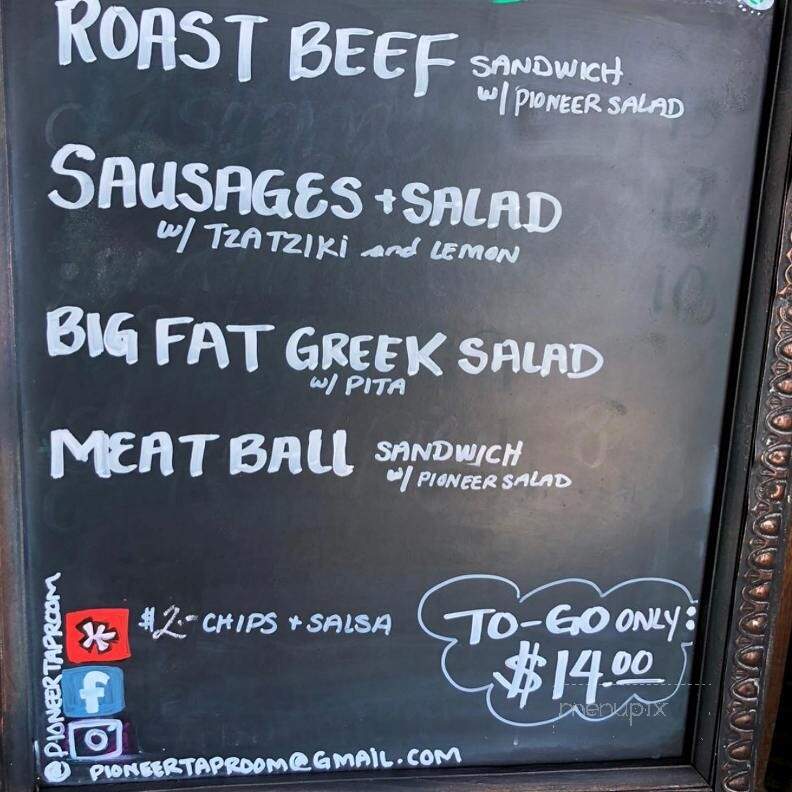 ROAST BEEF SANDWICH
w/ PIONEER SALAD
SAUSAGES + SALAD
w/ TZATZIKI and LEMON
BIG FAT GREEK SALAD
w/ PITA
MEATBALL SANDWICH
w/ PIONEER SALAD
$2.- CHIPS + SALSA
TO-GO ONLY:
$14.00
menupix
@PIONEERTAPROOM
PIONEERTAPROOM@GMAIL.COM